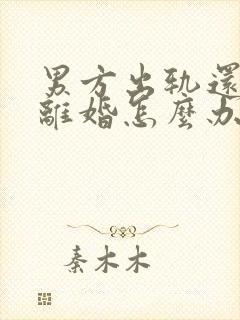 男方出軌還
離婚怎麼办
秦木木